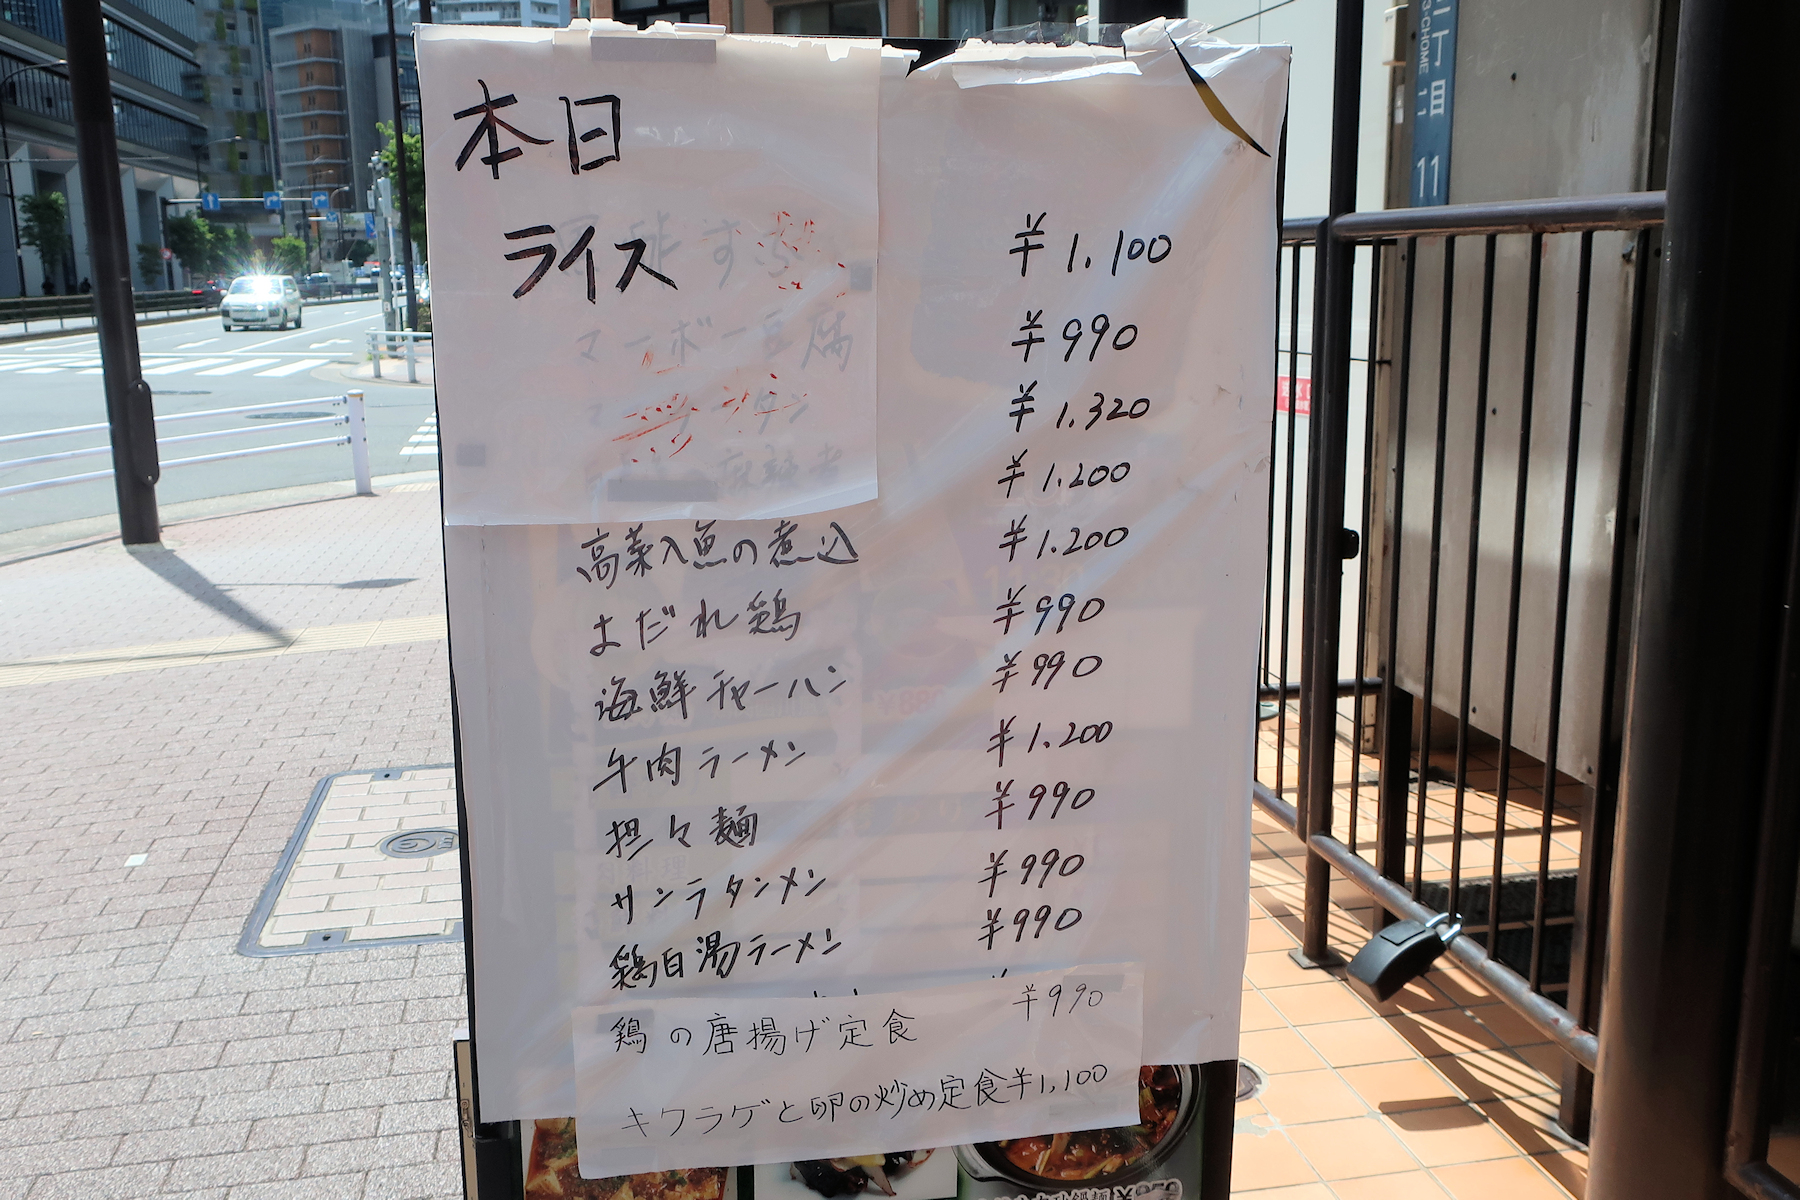 本日
ライス
¥1,100
マーボー豆腐 ¥990
¥1.320
¥1.200
高菜入魚の煮込 ¥1.200
よだれ鶏 ¥990
海鮮チャーハン ¥990
牛肉ラーメン ¥1.200
担々麺 ¥990
サンラタンメン ¥990
鶏白湯ラーメン ¥990
鶏の唐揚げ定食 ¥990
キクラゲと卵の炒め定食 ¥1,100
二丁目
3-CHOME
11
11